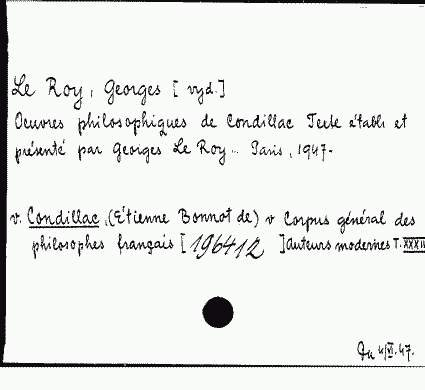 Le Roy, Georges [vyd.]
Oeuvres philosophiques de Condillac Texte établi et
présenté par Georges Le Roy.. Paris, 1947-
v. Condillac, (Étienne Bonnot de) v Corpus général des
philosophes français [196412] Auteurs modernes T.
4/VI.47.